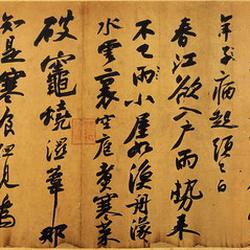 年子病起頭已白
春江欲入戶雨勢來
不已雨小屋如漁舟濛
水雲裏空庖煮寒菜
破竈燒濕葦那
知是寒食但見烏